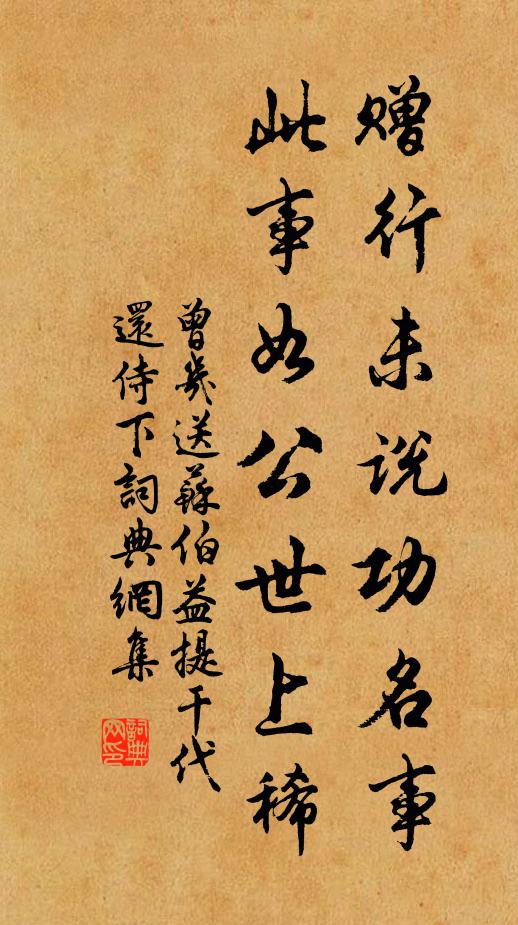 赠行未说功名事
此事如公世上稀
曾幾送蘇伯益提干代
還侍下詞典網集
詞典網印